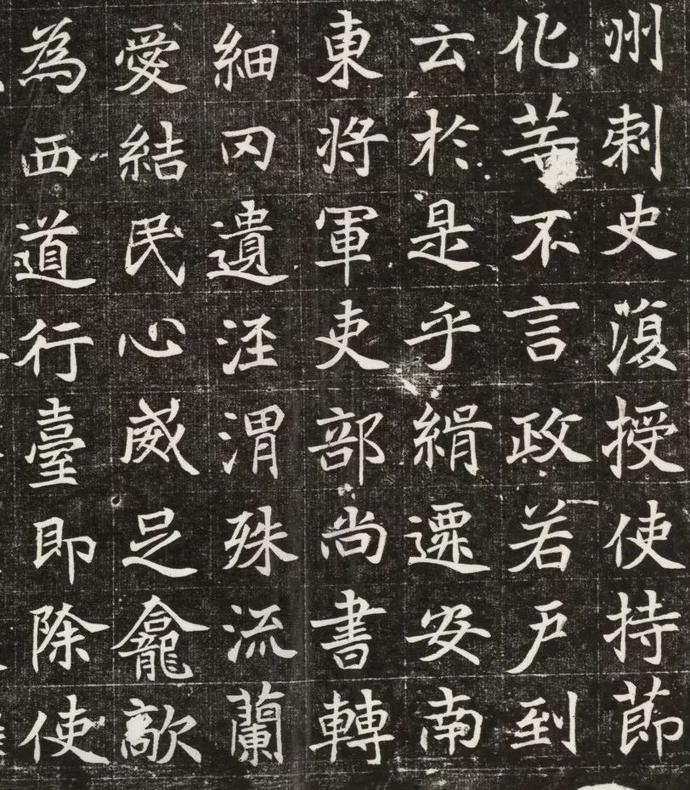 州刺史復授使持節
化等不言政若戶到
云於是乎緝遷安南
東將軍吏部尚書轉
細罔遺涇渭殊流蘭
愛結民心威足龕敵
為西道行臺即除使